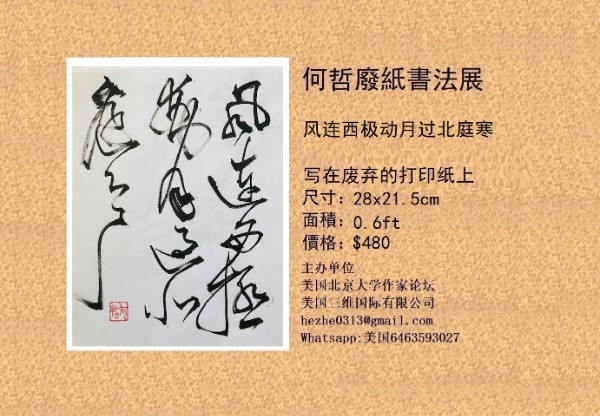 风连西极
动月过北
庭寒
何哲廢紙書法展
风连西极动月过北庭寒
写在废弃的打印纸上
尺寸：28x21.5cm
面積：0.6ft
價格：$480
主办单位
美国北京大学作家论坛
美国三维国际有限公司
hezhe0313@gmail.com
Whatsapp:美国6463593027